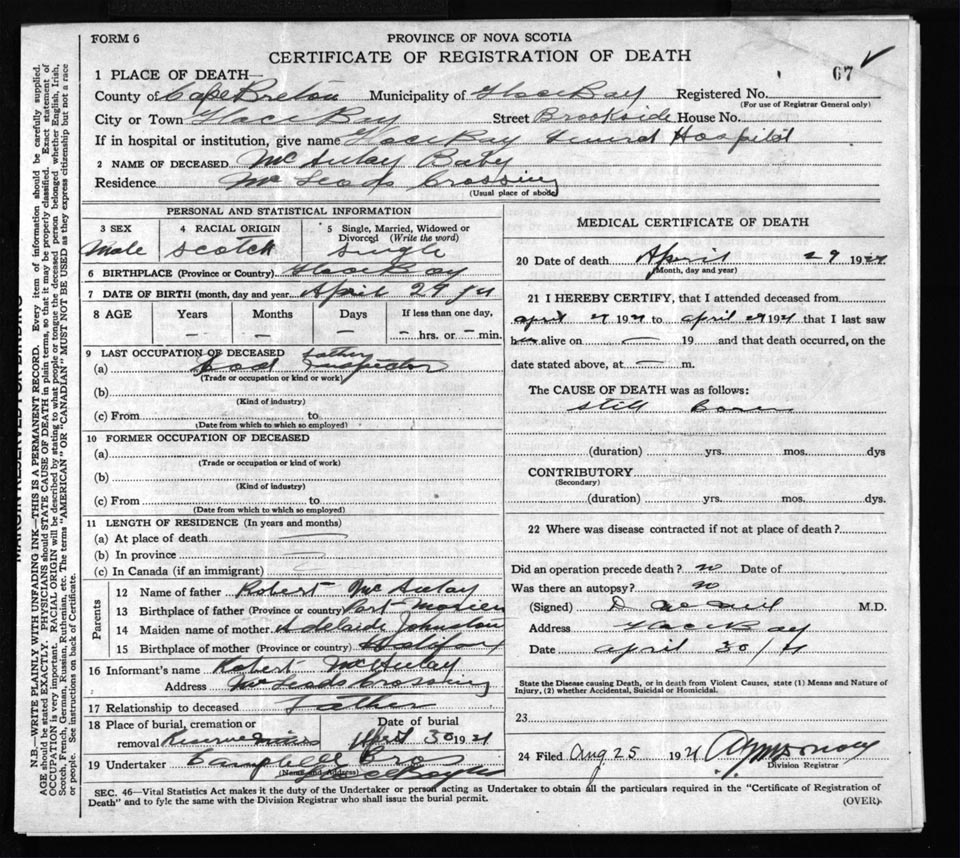 FORM 6
PROVINCE OF NOVA SCOTIA
CERTIFICATE OF REGISTRATION OF DEATH
67
1 PLACE OF DEATH—
County of Cape Breton Municipality of Glace Bay Registered No.
(For use of Registrar General only)
City or Town Glace Bay Street Brookside House No.
If in hospital or institution, give name Glace Bay General Hospital
2 NAME OF DECEASED McAulay Baby
Residence McLeods Crossing
(Usual place of abode)
PERSONAL AND STATISTICAL INFORMATION
3 SEX 4 RACIAL ORIGIN 5 Single, Married, Widowed or
Divorced (Write the word)
Male Scotch Single
6 BIRTHPLACE (Province or Country) Glace Bay
7 DATE OF BIRTH (month, day and year) April 29
8 AGE Years Months Days If less than one day,
— — — — hrs. or — min.
9 LAST OCCUPATION OF DECEASED father
(a) Inspector
(Trade or occupation or kind or work)
(b)
(Kind of industry)
(c) From to
(Date from which to which so employed)
10 FORMER OCCUPATION OF DECEASED
(a)
(Trade or occupation or kind of work)
(b)
(Kind of industry)
(c) From to
(Date from which to which so employed)
11 LENGTH OF RESIDENCE (In years and months)
(a) At place of death
(b) In province
(c) In Canada (if an immigrant)
Parents
12 Name of father Robert McAulay
13 Birthplace of father (Province or country) Port Morien
14 Maiden name of mother Adelaide Johnston
15 Birthplace of mother (Province or country) Halifax
16 Informant's name Robert McAulay
Address McLeods Crossing
17 Relationship to deceased Father
18 Place of burial, cremation or Date of burial
removal 30 19
19 Undertaker Campbell
(Name and Address)
MEDICAL CERTIFICATE OF DEATH
20 Date of death April 29 19
(Month, day and year)
21 I HEREBY CERTIFY, that I attended deceased from
april to april 29 that I last saw
alive on — 19 and that death occurred, on the
date stated above, at — m.
The CAUSE OF DEATH was as follows:
Still Born
(duration) yrs. mos. dys
CONTRIBUTORY
(Secondary)
(duration) yrs. mos. dys.
22 Where was disease contracted if not at place of death?
Did an operation precede death? no Date of
Was there an autopsy? no
(Signed) D M.D.
Address Glace Bay
Date april 30
State the Disease causing Death, or in death from Violent Causes, state (1) Means and Nature of
Injury, (2) whether Accidental, Suicidal or Homicidal.
23
24 Filed Aug 25 19
Division Registrar
SEC. 46—Vital Statistics Act makes it the duty of the Undertaker or person acting as Undertaker to obtain all the particulars required in the "Certificate of Registration of
Death" and to fyle the same with the Division Registrar who shall issue the burial permit.
(OVER)
MARGIN RESERVED FOR BINDING
N.B.—WRITE PLAINLY WITH UNFADING INK—THIS IS A PERMANENT RECORD. Every item of information should be carefully supplied.
AGE should be stated EXACTLY. PHYSICIANS should STATE CAUSE OF DEATH in plain terms, so that it may be properly classified. Exact statement of
OCCUPATION is very important. RACIAL ORIGIN will be described by stating to what people or tongue the deceased person belonged whether English, Irish,
Scotch, French, German, Russian, Ruthenian, etc. The terms "AMERICAN" OR "CANADIAN" MUST NOT BE USED as they express citizenship but not a race
or people. See instructions on back of Certificate.